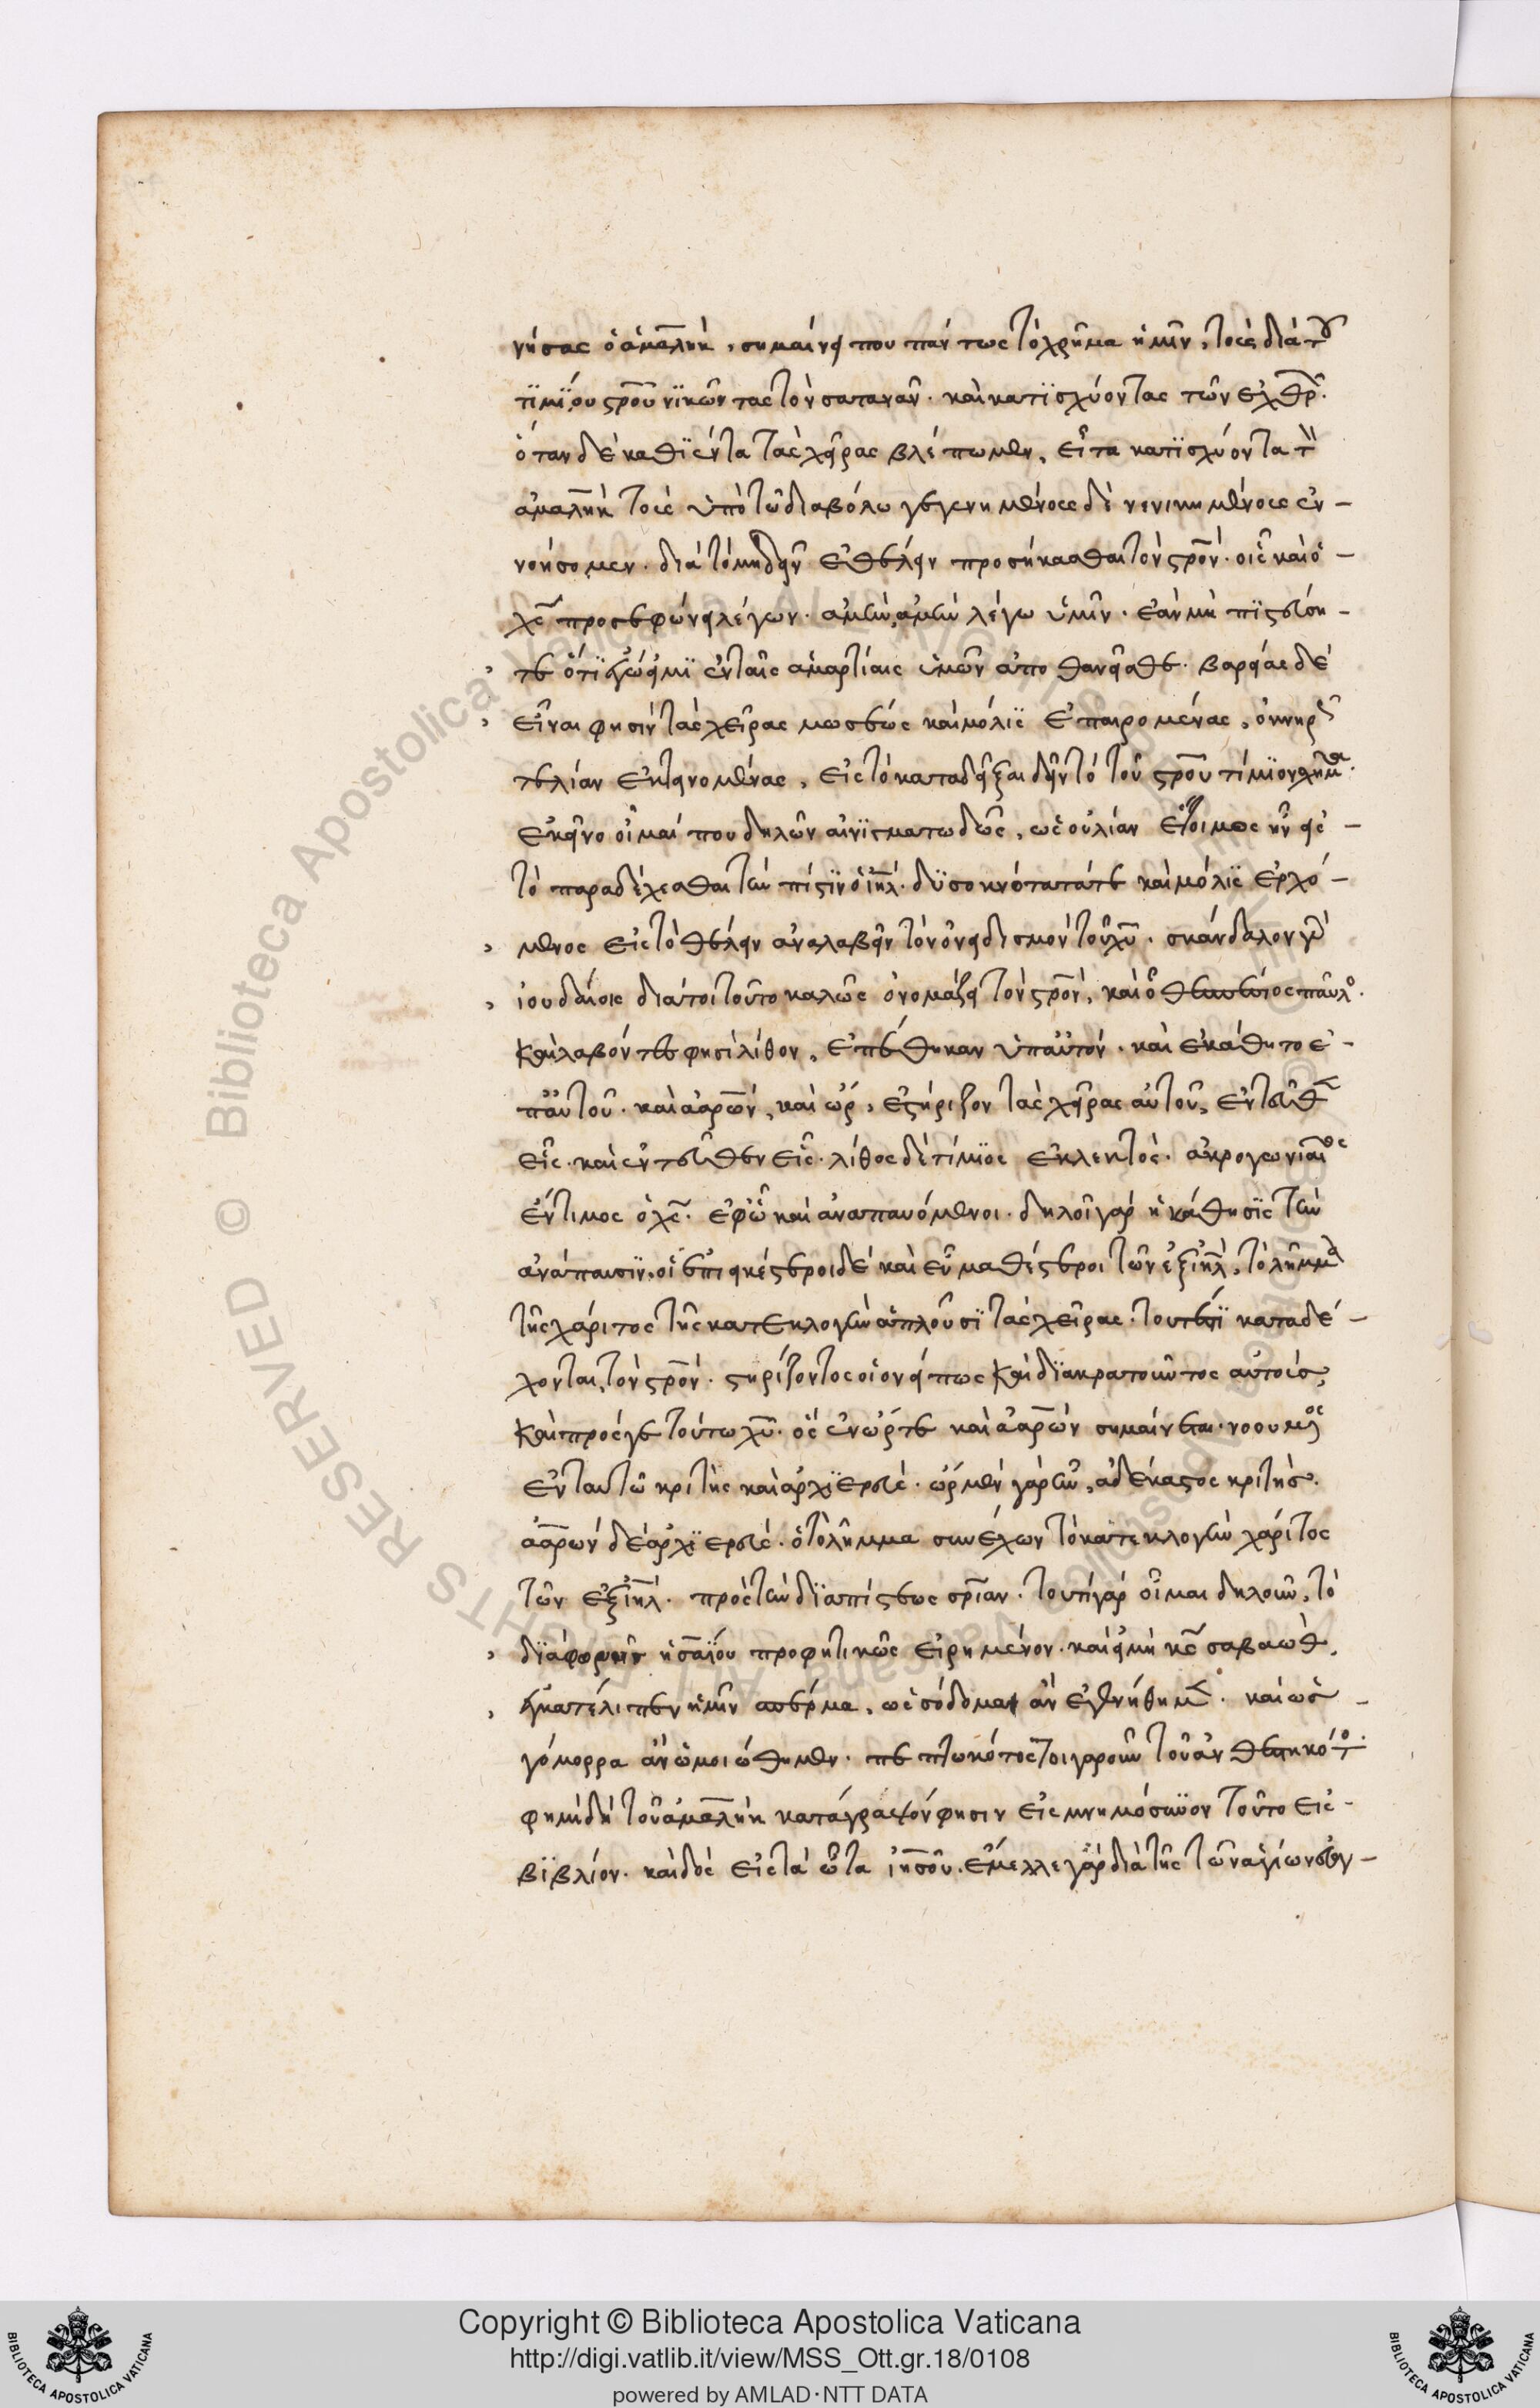 νήσας ὁ ἀμαλὴκ, σημαίνει που πάντως τὸ χρῆμα ἡμῖν, τοὺς διὰ τοῦ
τιμίου σρ̅ου νικῶντας τὸν σατανᾶν. καὶ κατισχύοντας τῶν ἐχθρ
ὅταν δὲ καθϊέντα τὰς χεῖρας βλέπωμεν, εἶτα κατισχύοντα τὸν
ἀμαλὴκ τοῖς ὑπὸ τῶ διαβόλω γεγενημένοις δὲ νενικημένοις ἐν-
νοήσομεν. διὰ τὸ μηδεῖν ἐθέλειν προσήκασθαι τὸν σρ̅ον. οἷς καὶ ὁ
χς̅ προσεφώνει λέγων. ἀμὴν, ἀμὴν λέγω ὑμῖν. ἐὰν μὴ πιστεύση-
τε ὅτι ἐγώ εἰμι ἐν ταῖς ἁμαρτίαις ὑμῶν ἀποθανεῖσθε. βαρείας δὲ
εἶναι φησὶν τὰς χεῖρας μωσέως καὶ μόλις ἐπαιρομένας, ὀκνηρῶς
τε λίαν ἐκτεινομένας, εἰς τὸ καταδεῖξαι δεῖν τὸ τοῦ σρ̅ου τίμιον χρῆμα.
ἐκεῖνο οἶμαί που δηλῶν αἰνιγματωδῶς, ὡς οὐ λίαν ἕτοιμος ἦν εἰς
τὸ παραδέχεσθαι τὴν πίστιν ὁ ἰηλ̅. δυσοκνότατά τε καὶ μόλις ἐρχό-
μενος εἰς τὸ θέλειν ἀναλαβεῖν τὸν ὀνειδισμὸν τοῦ χυ̅. σκάνδαλον γὰρ
ἰουδαίοις διάτοι τοῦτο καλῶς ὀνομάζει τὸν σρ̅ον, καὶ ὁ θεσπέσιος παῦλος.
Καὶ λαβόντες φησὶ λίθον, ἐπέθηκαν ὑπαὐτόν. καὶ ἐκάθητο ἐ-
παὐτοῦ. καὶ ἀαρὼν, καὶ ὤρ, ἐστήριζον τὰς χεῖρας αὐτοῦ, ἐντεῦθεν
εἷς. καὶ ἐντεῦθεν εἷς. λίθος δὲ τίμιος ἐκλεκτὸς. ἀκρογωνιαῖος
ἔντιμος ὁ χς̅. ἐφ’ ὧ καὶ ἀναπαυόμενοι. δηλοῖ γὰρ ἡ κάθησις τὴν
ἀνάπαυσιν. οἱ ἐπιεικέστεροι δὲ καὶ εὐμαθέστεροι τῶν ἐξ ιηλ̅, τὸ λῆμμα
τῆς χάριτος τῆς κατεκλογὴν ἁπλοῦσι τὰς χεῖρας. τουτέστι καταδέ-
χονται τὸν σρ̅ον. στηρίζοντος οἱονεί πως Καὶ διακρατοῦντος αὐτοὺς,
Καὶ πρός γε τούτω χυ̅. ὃς ἐν ὤρ τε καὶ ἀαρὼν σημαίνεται νοουμένος
ἐν ταυτῶ κριτὴς καὶ ἀρχϊερεύς. ὤρ μὲν γὰρ ἦν, ἀδέκαστος κριτής.
ἀαρὼν δὲ ἀρχϊερεύς. ὁ τὸ λῆμμα συνέχων τὸ κατεκλογὴν χάριτος
τῶν ἐξ ιηλ̅. πρὸς τὴν διὰ πίστεως σρ̅ίαν. τουτὶ γὰρ οἶμαι δηλοῦν, τὸ
διὰ φωνῆς ἡσαΐου προφητικῶς εἰρημένον. καὶ εἰ μὴ κς̅ σαβαὼθ,
ἐγκατέλιπεν ἡμῖν σπέρμα, ὡς σόδομα ἂν ἐγενήθημεν. καὶ ὡς
γόμορρα ἂν ὡμοιώθημεν. πεπτωκότος τοιγαροῦν τοῦ ἀντεθηκότος.
φημὶ δὴ τοῦ ἀμαλὴκ κατάγραψόν φησιν εἰς μνημόσυνον τοῦτο εἰς
βϊβλίον. καὶ δὸς εἰς τὰ ὦτα ἰησοῦ. ἔμελλε γὰρ διὰ τῆς τῶν ἁγίων συγ-
Copyright © Biblioteca Apostolica Vaticana
http://digi.vatlib.it/view/MSS_Ott.gr.18/0108
powered by AMLAD·NTT DATA